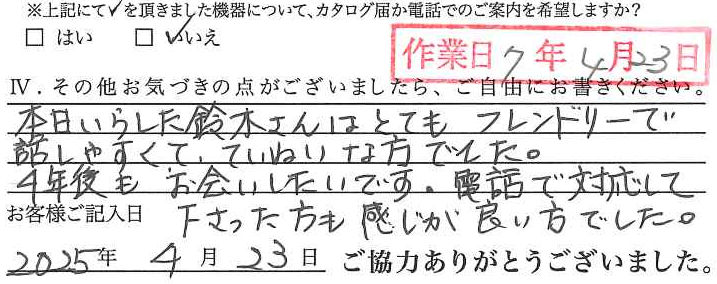 ※上記にて✓を頂きました機器について、カタログ届か電話でのご案内を希望しますか?
□ はい ☑ いいえ
作業日 7年 4月23日
Ⅳ．その他お気づきの点がございましたら、ご自由にお書きください。
本日いらした鈴木さんはとても フレンドリーで
話しやすくて、ていねいな方でした。
4年後も お会いしたいです。電話で対応して
下さった方も 感じが良い方でした。
お客様ご記入日
2025年 4月 23日 ご協力ありがとうございました。